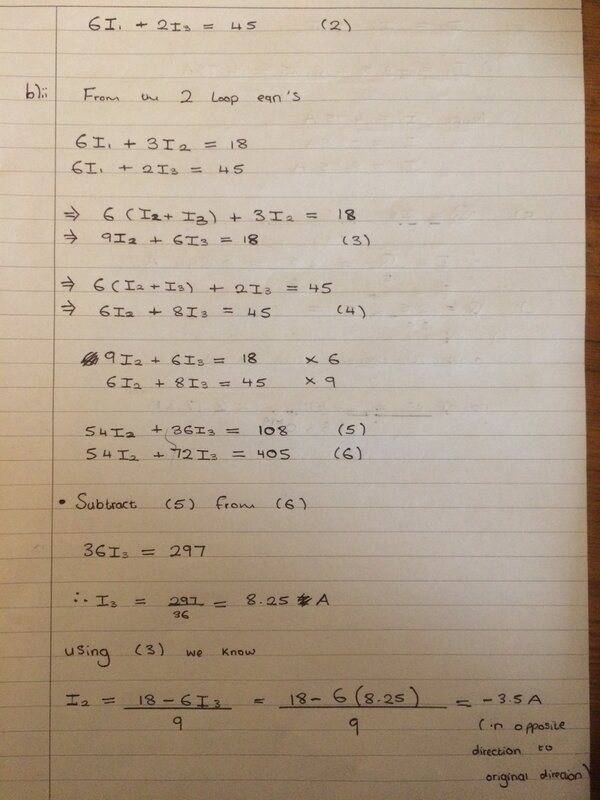 6I₁ + 2I₃ = 45 (2)
b)ii From the 2 Loop eqn's
6I₁ + 3I₂ = 18
6I₁ + 2I₃ = 45
⇒ 6(I₂ + I₃) + 3I₂ = 18
⇒ 9I₂ + 6I₃ = 18 (3)
⇒ 6(I₂ + I₃) + 2I₃ = 45
⇒ 6I₂ + 8I₃ = 45 (4)
9I₂ + 6I₃ = 18 × 6
6I₂ + 8I₃ = 45 × 9
54I₂ + 36I₃ = 108 (5)
54I₂ + 72I₃ = 405 (6)
• Subtract (5) from (6)
36I₃ = 297
∴ I₃ = 297/36 = 8.25 A
using (3) we know
I₂ = (18 - 6I₃)/9 = (18 - 6(8.25))/9 = -3.5 A
(in opposite
direction to
original direcion)